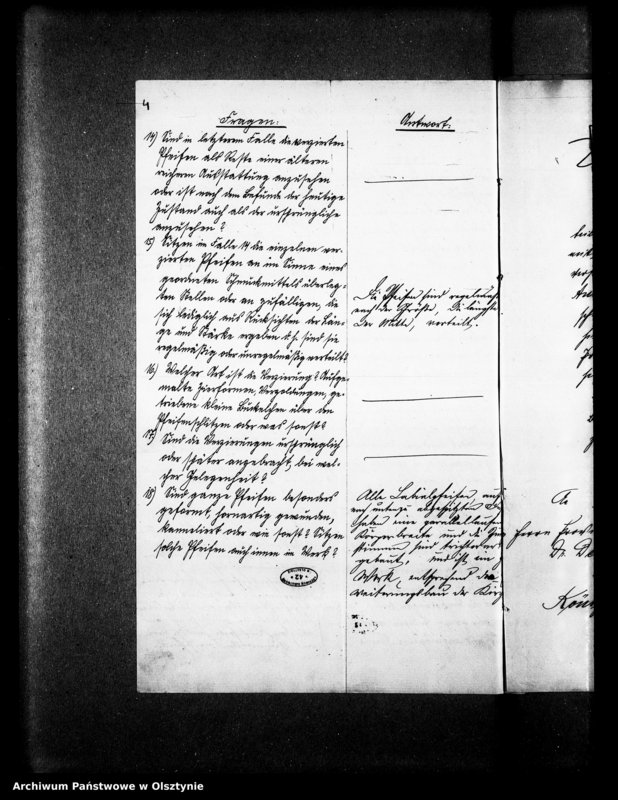 4
Fragen:
14) Sind in letzterem Falle die verzierten
Pfeifen als Reste einer älteren
reicheren Ausstattung anzusehen
oder ist nach dem Befunde der heutige
Zustand auch als der ursprüngliche
anzusehen?
15) Sitzen im Falle 14 die einzelnen ver-
zierten Pfeifen an im Sinne eines
geordneten Schmuckmittels überleg-
ten Stellen oder an zufälligen, die
sich lediglich aus Rücksichten der Län-
ge und Stärke ergeben d. h. sind sie
regelmäßig oder unregelmäßig verteilt?
16) Welcher Art ist die Verzierung? Aufge-
malte Zierformen, Vergoldungen, ge-
triebene kleine Buckelchen über den
Pfeifenschlitzen oder was sonst?
17) Sind die Verzierungen ursprünglich
oder später angebracht, bei wel-
cher Gelegenheit?
18) Sind ganze Pfeifen besonders
geformt, hornartig gewunden,
kanneliert oder wie sonst? Sitzen
solche Pfeifen auch innen im Werk?
Antwort:
Die Pfeifen sind regelmäßig
nach der Größe, die längste
der Mitte, verteilt.
Alle Labialpfeifen, auch
nach unten abgesetzten
haben eine parallellaufende
Körperbreite und die
stimmen sind trichterartig
gebaut, und ist im
Werk, entsprechend der
Erweiterungsbau der
An
Herrn
Dr. De
König
42
Archiwum Państwowe w Olsztynie